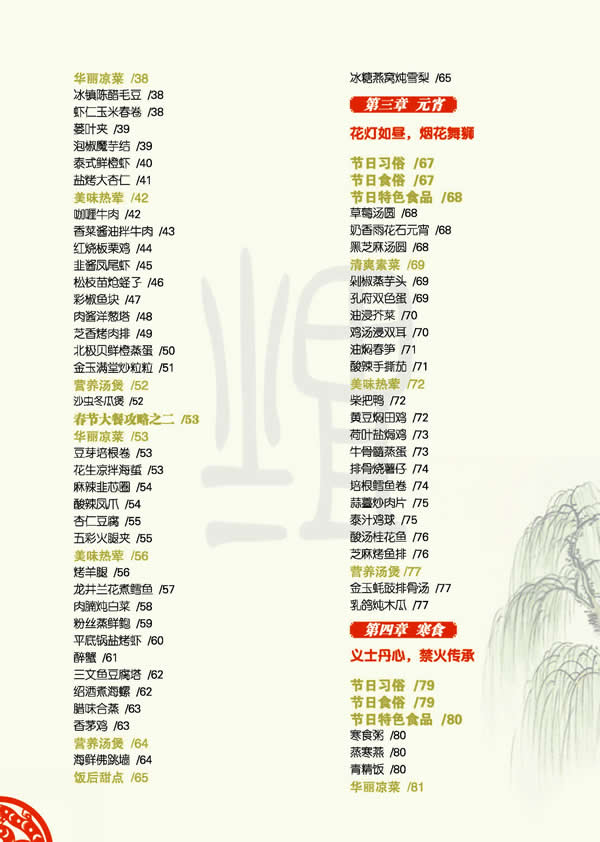 华丽凉菜 /38
冰镇陈醋毛豆 /38
虾仁玉米春卷 /38
蒌叶夹 /39
泡椒魔芋结 /39
泰式鲜橙虾 /40
盐烤大杏仁 /41
美味热荤 /42
咖喱牛肉 /42
香菜酱油拌牛肉 /43
红烧板栗鸡 /44
韭酱凤尾虾 /45
松枝苗炝蛏子 /46
彩椒鱼块 /47
肉酱洋葱塔 /48
芝香烤肉排 /49
北极贝鲜橙蒸蛋 /50
金玉满堂炒粒粒 /51
营养汤煲 /52
沙虫冬瓜煲 /52
春节大餐攻略之二 /53
华丽凉菜 /53
豆芽培根卷 /53
花生凉拌海蜇 /53
麻辣韭芯圈 /54
酸辣凤爪 /54
杏仁豆腐 /55
五彩火腿夹 /55
美味热荤 /56
烤羊腿 /56
龙井兰花煮鳕鱼 /57
肉腩炖白菜 /58
粉丝蒸鲜鲍 /59
平底锅盐烤虾 /60
醉蟹 /61
三文鱼豆腐塔 /62
绍酒煮海螺 /62
腊味合蒸 /63
香茅鸡 /63
营养汤煲 /64
海鲜佛跳墙 /64
饭后甜点 /65
冰糖燕窝炖雪梨 /65
第三章 元宵
花灯如昼，烟花舞狮
节日习俗 /67
节日食俗 /67
节日特色食品 /68
草莓汤圆 /68
奶香雨花石元宵 /68
黑芝麻汤圆 /68
清爽素菜 /69
剁椒蒸芋头 /69
孔府双色蛋 /69
油浸芥菜 /70
鸡汤浸双耳 /70
油焖春笋 /71
酸辣手撕茄 /71
美味热荤 /72
柴把鸭 /72
黄豆焖田鸡 /72
荷叶盐焗鸡 /73
牛骨髓蒸蛋 /73
排骨烧薯仔 /74
培根鳕鱼卷 /74
蒜薹炒肉片 /75
泰汁鸡球 /75
酸汤桂花鱼 /76
芝麻烤鱼排 /76
营养汤煲 /77
金玉蚝豉排骨汤 /77
乳鸽炖木瓜 /77
第四章 寒食
义士丹心，禁火传承
节日习俗 /79
节日食俗 /79
节日特色食品 /80
寒食粥 /80
蒸寒燕 /80
青精饭 /80
华丽凉菜 /81